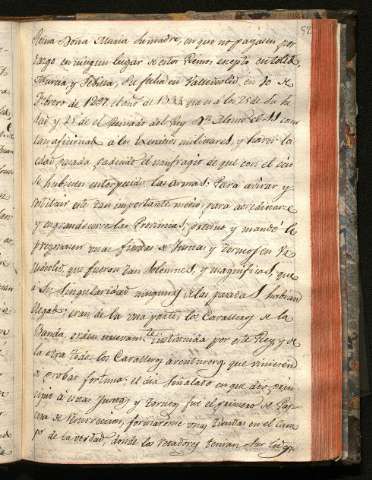 52
Reina Doña Maria su madre, en que no paguen por
tazgo en ningun lugar de estos Reinos excepto en Toledo
Murcia y Sevilla. Su fecha en Valladolid, en 20 de
Febrero de
edad y 21 de el Reinado del Rey Dn Alonso el 11 con
aficion a los exercicios militares, y haver la
edad pasada padecido el naufragio de que con el ocio
se hubiesen entorpecido las armas. Para avivar y
restituir este tan importante medio, para
y engrandecerse las Provincias, previno y mandó
pregonasen unas fiestas de Justas y Torneos en Va
lladolid, que fueron tan solemnes, y magnificas, que
a su singularidad ningunas de las pasadas habian
llegado; eran de la una parte los Caballeros de la
Banda, orden nuevamte instituida por este Rey y de
la otra todos los Caballeros aventureros que viniesen
a probar fortuna; el dia señalado en que dar prin
cipio a estas Justas y Torneos fue el primero de Pas
cua de Resurreccion, formaronse unas Tiendas en el Cam
po de la verdad, donde los